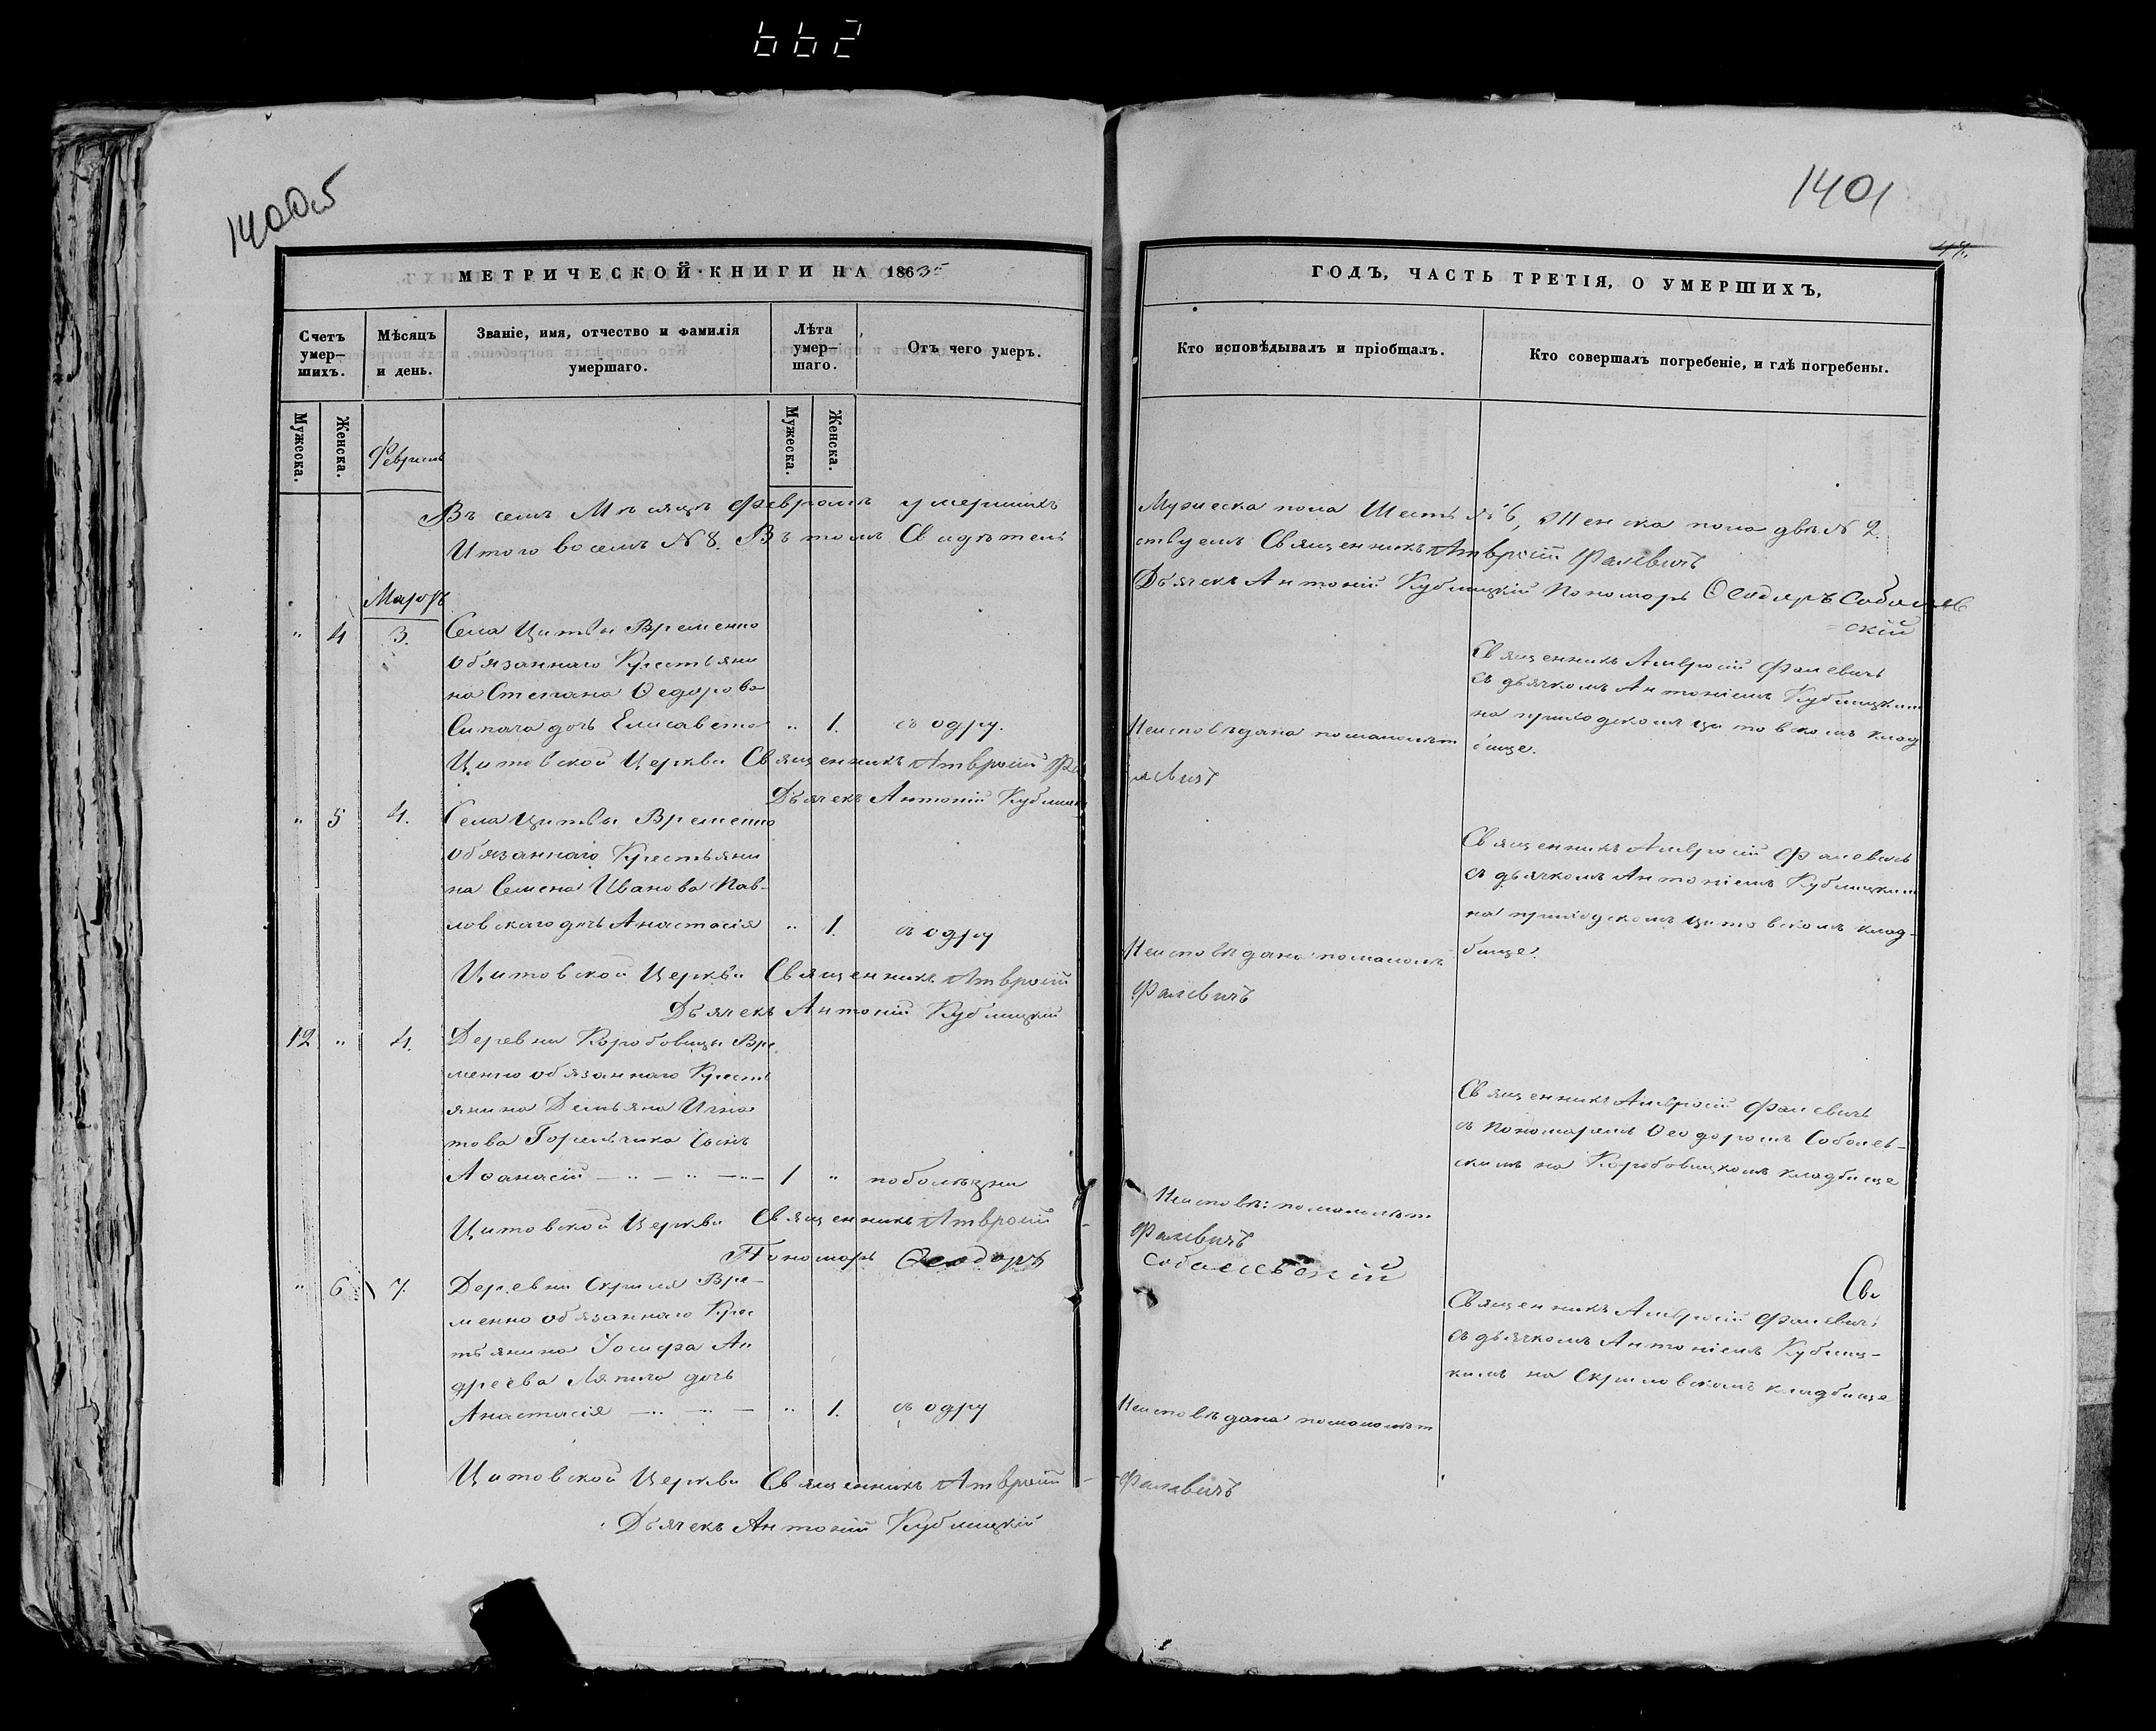 662
1400об
1401
МЕТРИЧЕСКОЙ КНИГИ НА 1863й
ГОДЪ, ЧАСТЬ ТРЕТІЯ, О УМЕРШИХЪ,
Счетъ умер-шихъ.
Мѣсяцъ и день.
Званіе, имя, отчество и фамилія умершаго.
Лѣта умер-шаго.
Отъ чего умеръ.
Кто исповѣдывалъ и пріобщалъ.
Кто совершалъ погребеніе, и гдѣ погребены.
Мужеска.
Женска.
Мужеска.
Женска.
Февраль
Въ семъ Мѣсяцѣ Февралѣ умершихъ Мужеска пола Шесть №6, Женска пола двѣ N 2.
Итого восемь N 8. Въ томъ Свидѣтель
ствуемъ Священникъ Амвросій Фалевичъ
Дьячекъ Антоній Кублицкій Пономарь Ѳеодоръ Соболев
=скій
Мартъ
" 4 3. Села Цитвы Временно
обязаннаго Крестьяни
на Стефана Ѳедорова
дочь Елисавета " 1. съ одру.
Неисповѣдана помалолѣт
Священникъ Амвросій Фалевичъ
съ дьячкомъ Антоніемъ Кублицкимъ
на приходскомъ Цитовскомъ клад
бище.
Цитовской Церкви Священникъ Амвросій Фа
левичъ
Дьячекъ Антоній Кублицкі
" 5 4. Села Цитвы Временно
обязаннаго Крестьяни
на Семена Иванова Пав-
ловскаго дочь Анастасія " 1. съ одру
Неисповѣдана помалолѣ
Священникъ Амвросій Фалевичъ
съ дьячкомъ Антоніемъ Кублицкимъ
на приходскомъ Цитовскомъ клад-
бище.
Цитовской Церкви Священникъ Амвросій
Фалевичъ
Дьячекъ Антоній Кублицкій
12 " 4. Деревни Коробовцы Вре
менно обязаннаго Кресть
янина Демьяна Игна
това Горельчика Сынъ
Аѳанасій 1 " по болѣзни
Неисповѣ: помалолѣт
Священникъ Амвросій Фалевичъ
съ Пономаремъ Ѳеодоромъ Соболев-
скимъ на Коробовцкомъ кладбище
Цитовской Церкви Священникъ Амвросій
Фалевичъ
Пономарь Ѳеодоръ
Соболевскій
Св
" 6 7. Деревни Скриля Вре-
менно обязаннаго Крес
тьянина Іосифа Ан
дреева Ляпило дочь
Анастасія " 1. съ одру
Неисповѣдана помалолѣт
Священникъ Амвросій Фалевичъ
съ дьячкомъ Антоніемъ Кублиц-
кимъ на Скриловскомъ кладбище
Цитовской Церкви Священникъ Амвросій
Фалевичъ
Дьячекъ Антоній Кублицкій